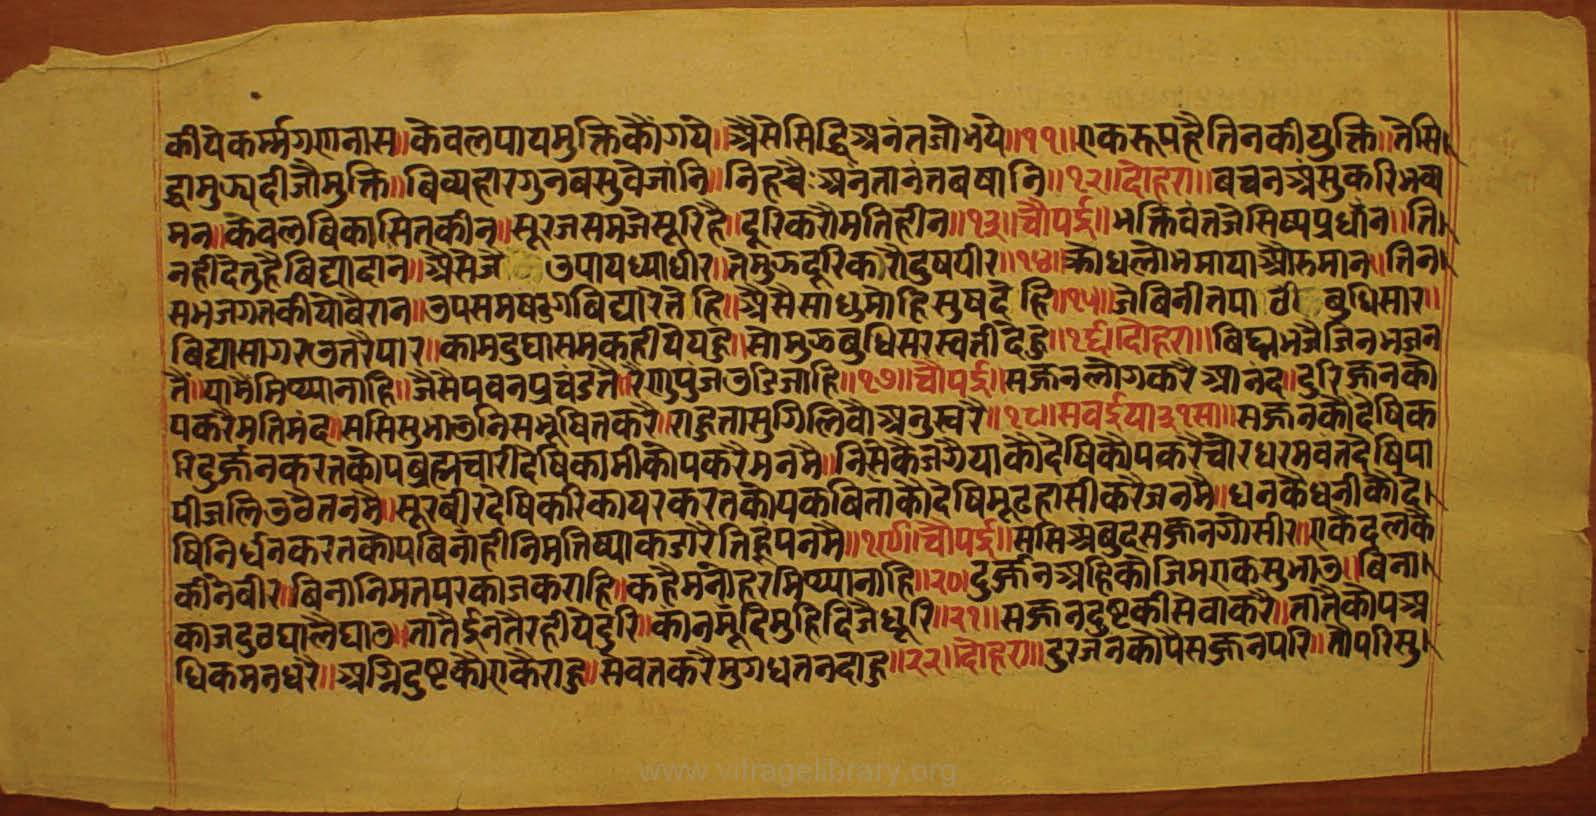 कीयेकर्म्मगणनास॥केवलपायमुक्तिकौंगये॥अैसेसिद्धिअनंतजोभये॥११॥एकरूपहैतिनकीयुक्ति॥तेसि
द्धामुझदीजौमुक्ति॥बिव्यहारगुनबसुवेजांनि॥निहचैअनतानंतबषानि॥१२॥दोहरा॥बचनअंसुकरिभव्य
मन॥केवलबिकासितकीन॥सूरजसमजेसूरिहै॥दूरिकरौमतिहीन॥१३॥चौपई॥भक्तिवंतजेसिष्यप्रधांन॥ति
नहींदेतुहैबिद्यादान॥अैसेजे उपायध्याधीर॥तेमुझदूरिकरौदुषपीर॥१४॥क्रोधलोभमायाऔरुमान॥तिन
समजगतकीयोबैरान॥उपसमषडगबिद्यारेतेहि॥अैसैसाधुमोहिसुषदेहि॥१५॥जेबिनीतपा ठी बुधिसार॥
बिद्यासागरउतरैपार॥कामदुघासमकहीयेयहु॥सोमुझबुधिसरस्वतीदेहु॥१६॥दोहरा॥बिघ्नभजैजिनभजन
तै॥यामैमिथ्यानाहि॥जैसैपवनप्रचंडतै॥रेणपुजउडिजाहि॥१७॥चौपई॥सज्जनलोगकरैआनद॥दुरिज्जनको
पकरैमतिमंद॥ससिसुभाउनिसभूषितकरै॥राहुतासुगिलिवौअनुस्वरै॥१८॥सवईया३१सा॥सज्जनकौदेषिक
रिदुर्ज्जनकरतकोपब्रह्मचारीदेषिकामीकोपकरैमनमै॥निसकैजगैयाकौदेषिकोपकरैचोरधरमवतदेषिपा
पीजलिउठैतनमै॥सूरबीरदेषिकरिकायरकरतकोपकबिताकौदेषिमूढहासीकरैजनमै॥धनकेधनीकौदे
षिनिर्धनकरतकोपबिनाहीनिमतिष्याकडारैतिहूंपनमै॥१९॥चौपई॥ससिअबुदसज्जनगोसीर॥एकैदलकै
कीनेबीर॥बिनानिमतपरकाजकराहि॥कहैमनोहरमिथ्यानाहि॥२०॥दुर्ज्जनअहिकौजिमएकसुभाउ॥बिना
काजदुठघालैघाउ॥तातैईनतैरहीयेदुरि॥कानमूंदिमुहिदिजैधूरि॥२१॥सज्जनदुष्टकीसेवाकरै॥तातैकोपअ
धिकमनधरै॥अग्निदुष्टकौएकैराहु॥सेवतकरैमुगधतनदाहु॥२२॥दोहरा॥दुरजनकोपैसज्जनपरि॥तौपरिसु
www.vitragelibrary.org